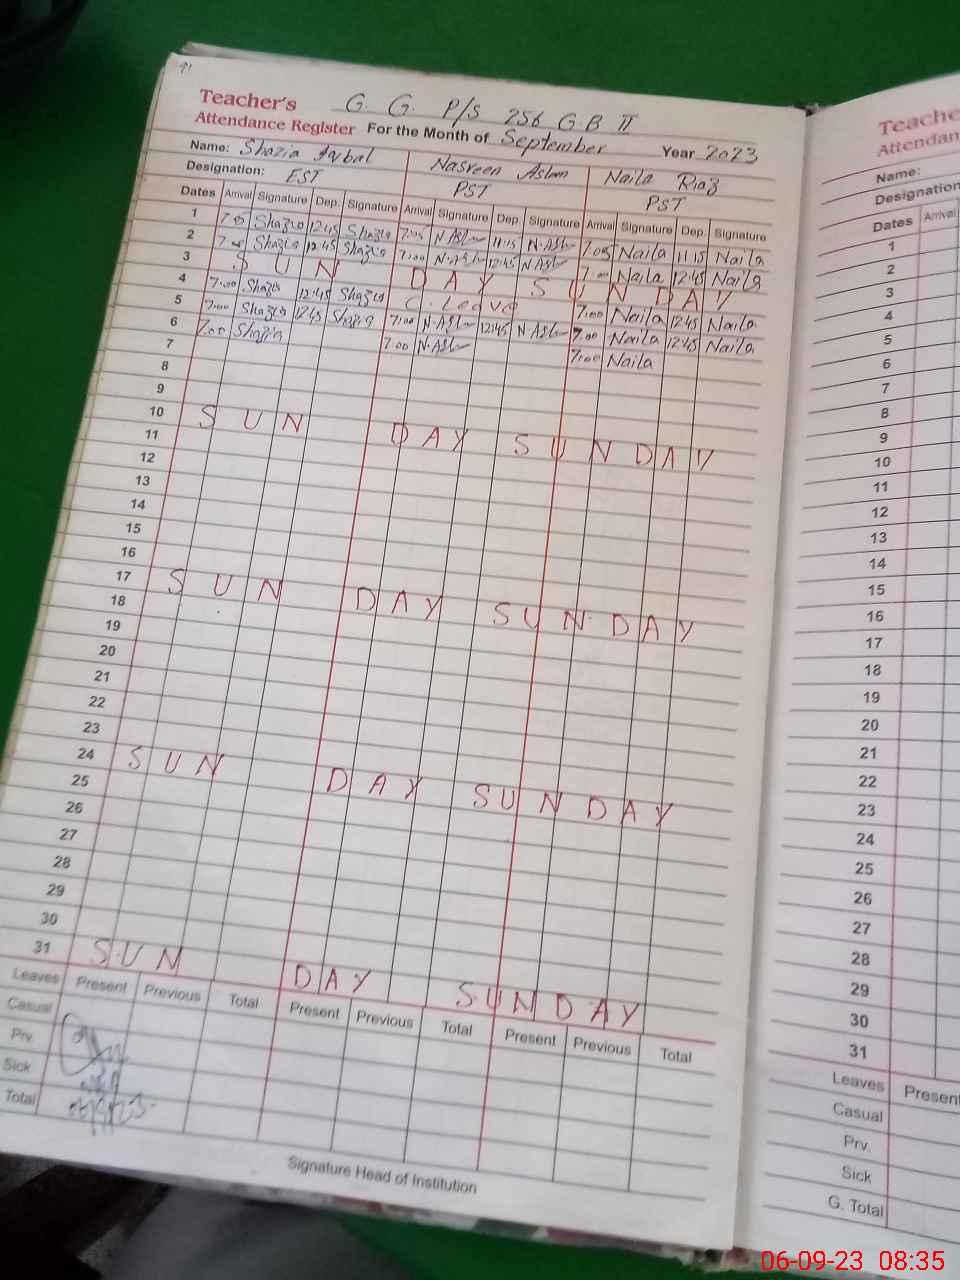 91
Teacher's G. G. P/S 256 G.B II
Attendance Register For the Month of September Year 2023
Name: Shazia Iqbal Nasreen Aslam Naila Riaz
Designation: EST PST PST
Dates Arrival Signature Dep. Signature Arrival Signature Dep. Signature Arrival Signature Dep. Signature
1 7.05 Shazia 12:45 Shazia 7:05 N.Asl 11:15 N.Asl 7.05 Naila 11:15 Naila
2 Shazia 12:45 Shazia 7:00 N.Asl 12:45 N.Asl 7:00 Naila 12:45 Naila
3 S U N D A Y S U N D A Y
4 7:00 Shazia 12:45 Shazia C. Leave 7:00 Naila 12:45 Naila
5 7:00 Shazia 12:45 Shazia 7:00 N.Asl 12:45 N.Asl 7.00 Naila 12:45 Naila
6 7.00 Shazia 7.00 N.Asl 7:00 Naila
7
8
9
10 S U N D A Y S U N D A Y
11
12
13
14
15
16
17 S U N D A Y S U N D A Y
18
19
20
21
22
23
24 S U N D A Y S U N D A Y
25
26
27
28
29
30
31 S U N D A Y S U N D A Y
Leaves Present Previous Total Present Previous Total Present Previous Total
Casual
Prv.
Sick
Total
Signature Head of Institution
Teache
Attendan
Name:
Designation
Dates Arrival
1
2
3
4
5
6
7
8
9
10
11
12
13
14
15
16
17
18
19
20
21
22
23
24
25
26
27
28
29
30
31
Leaves Present
Casual
Prv.
Sick
G. Total
06-09-23 08:35